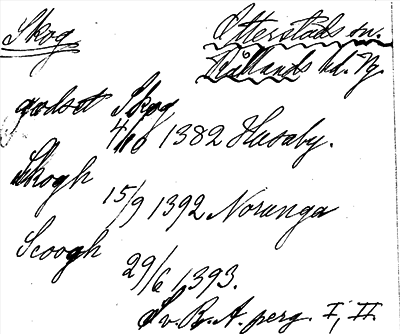 Skog. Otterstads sn.
Kållands hd. Vg.
godset Skog
4/10 1382 Husaby.
Skogh
15/9 1392 Noranga
Scoogh
29/6 1393.
Sv. R. A. perg. I, II.